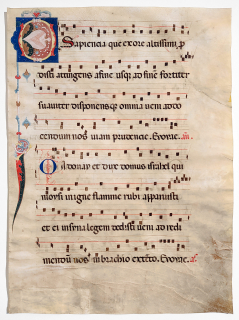 O Sapiencia que ex ore altissimi p
disti attingens a fine usq; ad finē fortiter
suauiter disponensq; omnia ueni ad do
cendum nos uiam prudencie. Euouae.
O adonay et dux domus israhel qui
moysi in igne flamme rubi apparuisti
et ei in syna legem dedisti ueni ad redi
mendū nos in brachio extēto. Euouae.